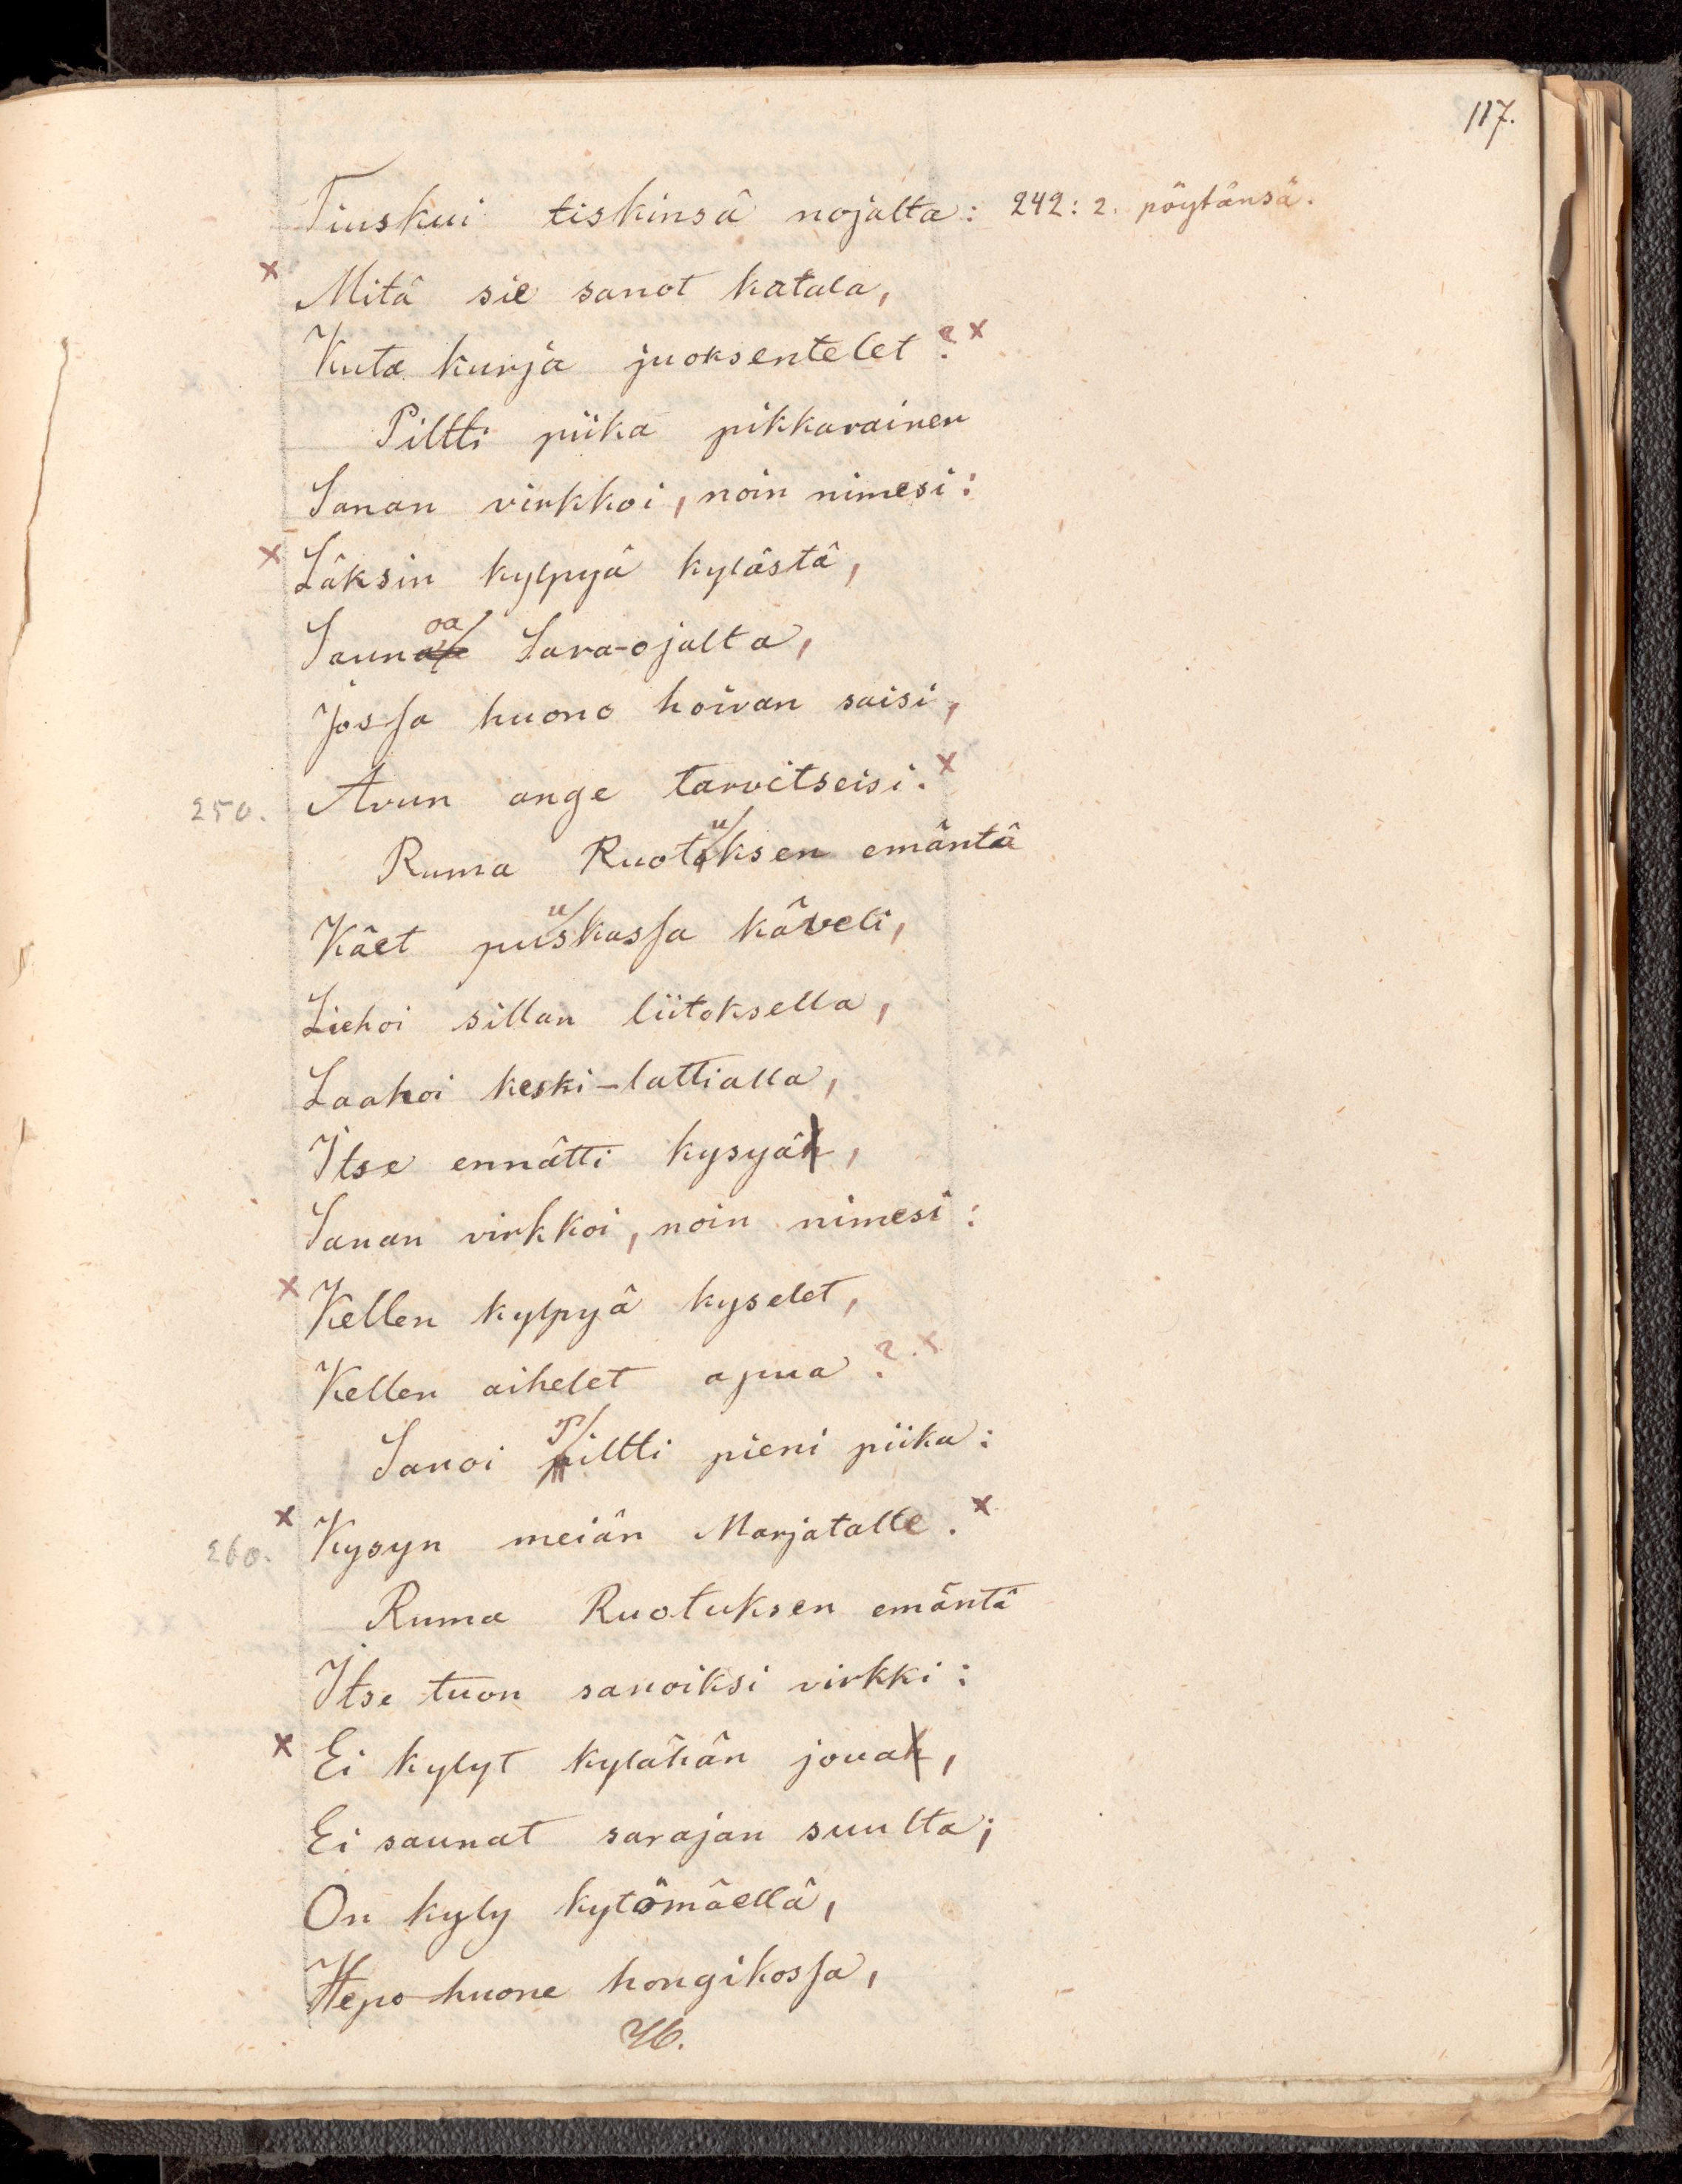 117.
Tiuskui tiskinsä nojalta: 242: 2. pöytänsä.
x Mitä sie sanot katala,
Kuta kurja juoksentelet? x
Piltti piika pikkarainen
Sanan virkkoi, noin nimesi:
x Läksin kylpyä kylästä,
Saunoa Sara-ojalta,
Jossa huono hoivan saisi,
250. Avun ange tarvitseisi. x
Ruma Ruotuksen emäntä
Käet puuskassa käveli,
Liehoi sillan liitoksella,
Laahoi keski-lattialla,
Itse ennätti kysyä,
Sanan virkkoi, noin nimesi:
x Kellen kylpyä kyselet,
Kellen aihelet apua? x
Sanoi Piltti pieni piika:
x 260. Kysyn meiän Marjatalle. x
Ruma Ruotuksen emäntä
Itse tuon sanoiksi virkki:
x Ei kylyt kylähän joua,
Ei saunat sarajan suulta;
On kyly kytömäellä,
Hepo-huone hongikossa,